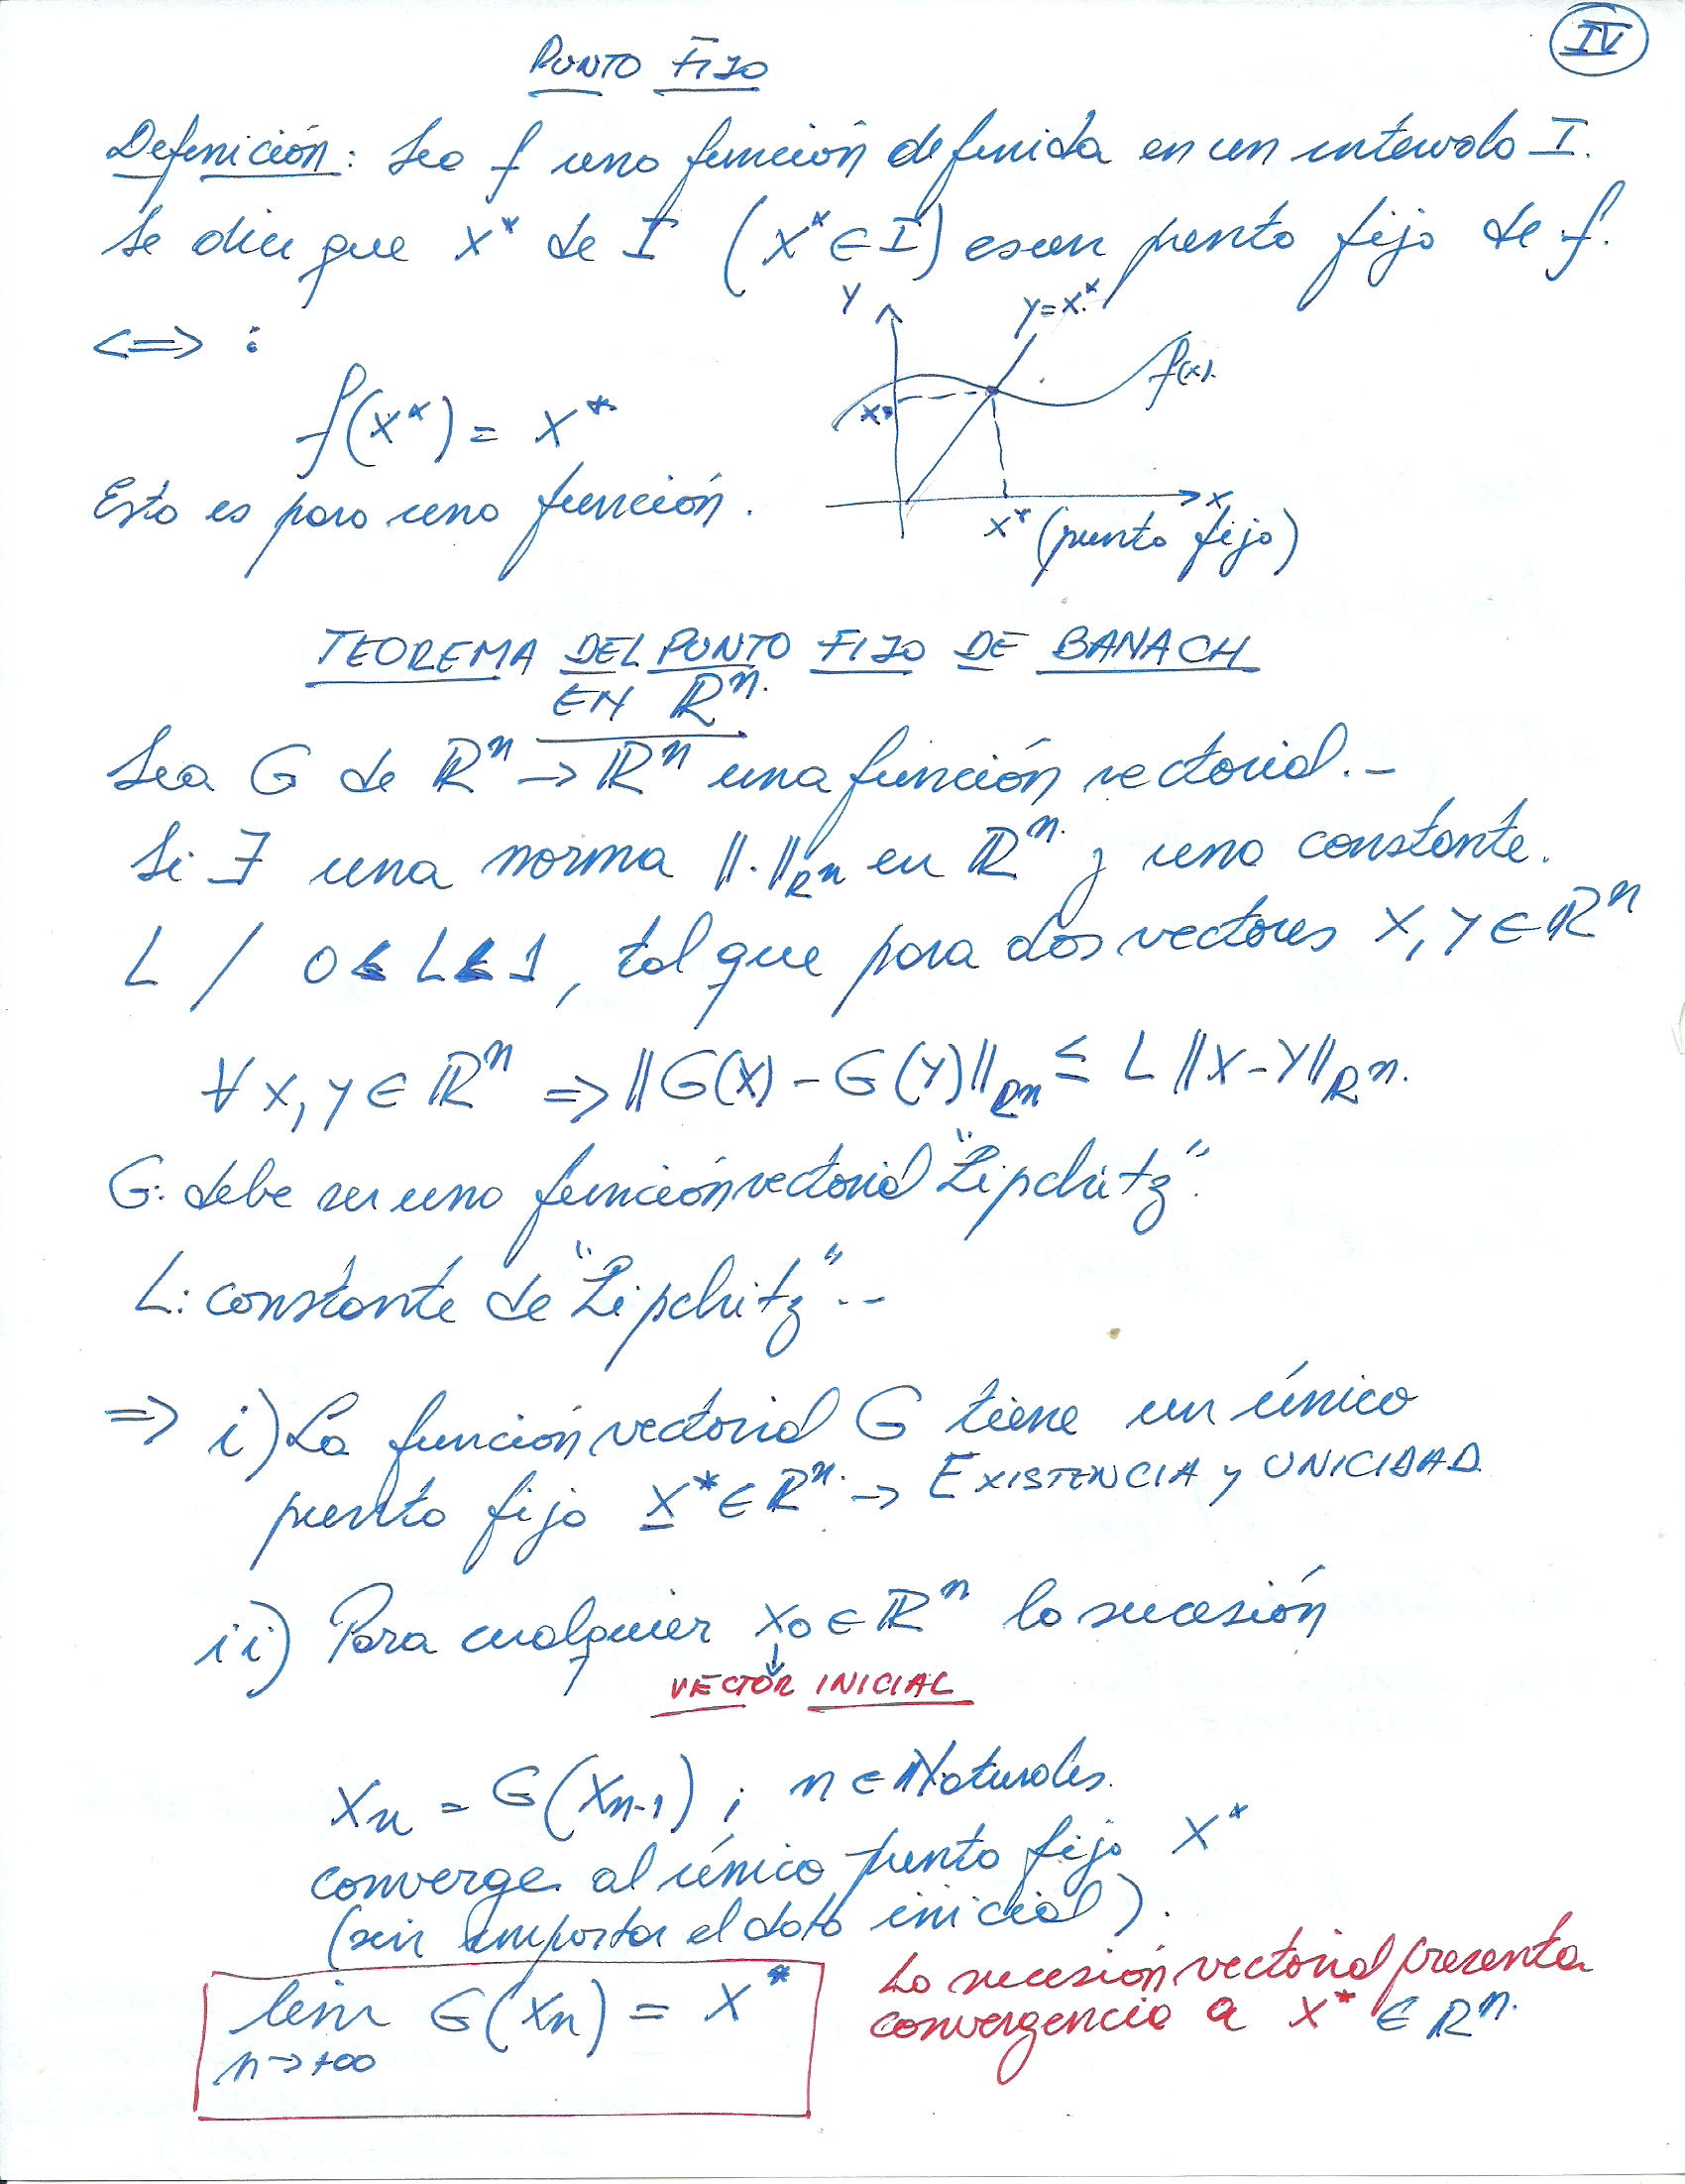 IV
PUNTO FIJO
Definición: Sea f una función definida en un intervalo I.
Se dice que x* de I (x* ∈ I) es un punto fijo de f.
<=> :
Y
y = x*
f(x).
x*
f(x*) = x*
x
Esto es para una función.
x* (punto fijo)
TEOREMA DEL PUNTO FIJO DE BANACH
EN ℝⁿ.
Sea G de ℝⁿ → ℝⁿ una función vectorial.-
Si ∃ una norma ||.||ℝⁿ en ℝⁿ y una constante.
L / 0 < L < 1, tal que para dos vectores X, Y ∈ ℝⁿ
∀ x, y ∈ ℝⁿ => ||G(X) - G(Y)||ℝⁿ ≤ L ||X-Y||ℝⁿ.
G: debe ser una función vectorial "Lipchitz".
L: constante de "Lipchitz"--
=> i) La función vectorial G tiene un único
punto fijo X* ∈ ℝⁿ. → EXISTENCIA y UNICIDAD
ii) Para cualquier x₀ ∈ ℝⁿ la sucesión
↓
VECTOR INICIAL
Xn = G(Xn-1) ; n ∈ Naturales.
converge al único punto fijo X*
(sin importar el dato inicial).
lim G(Xn) = X*
n→+∞
La sucesión vectorial presenta
convergencia a X* ∈ ℝⁿ.